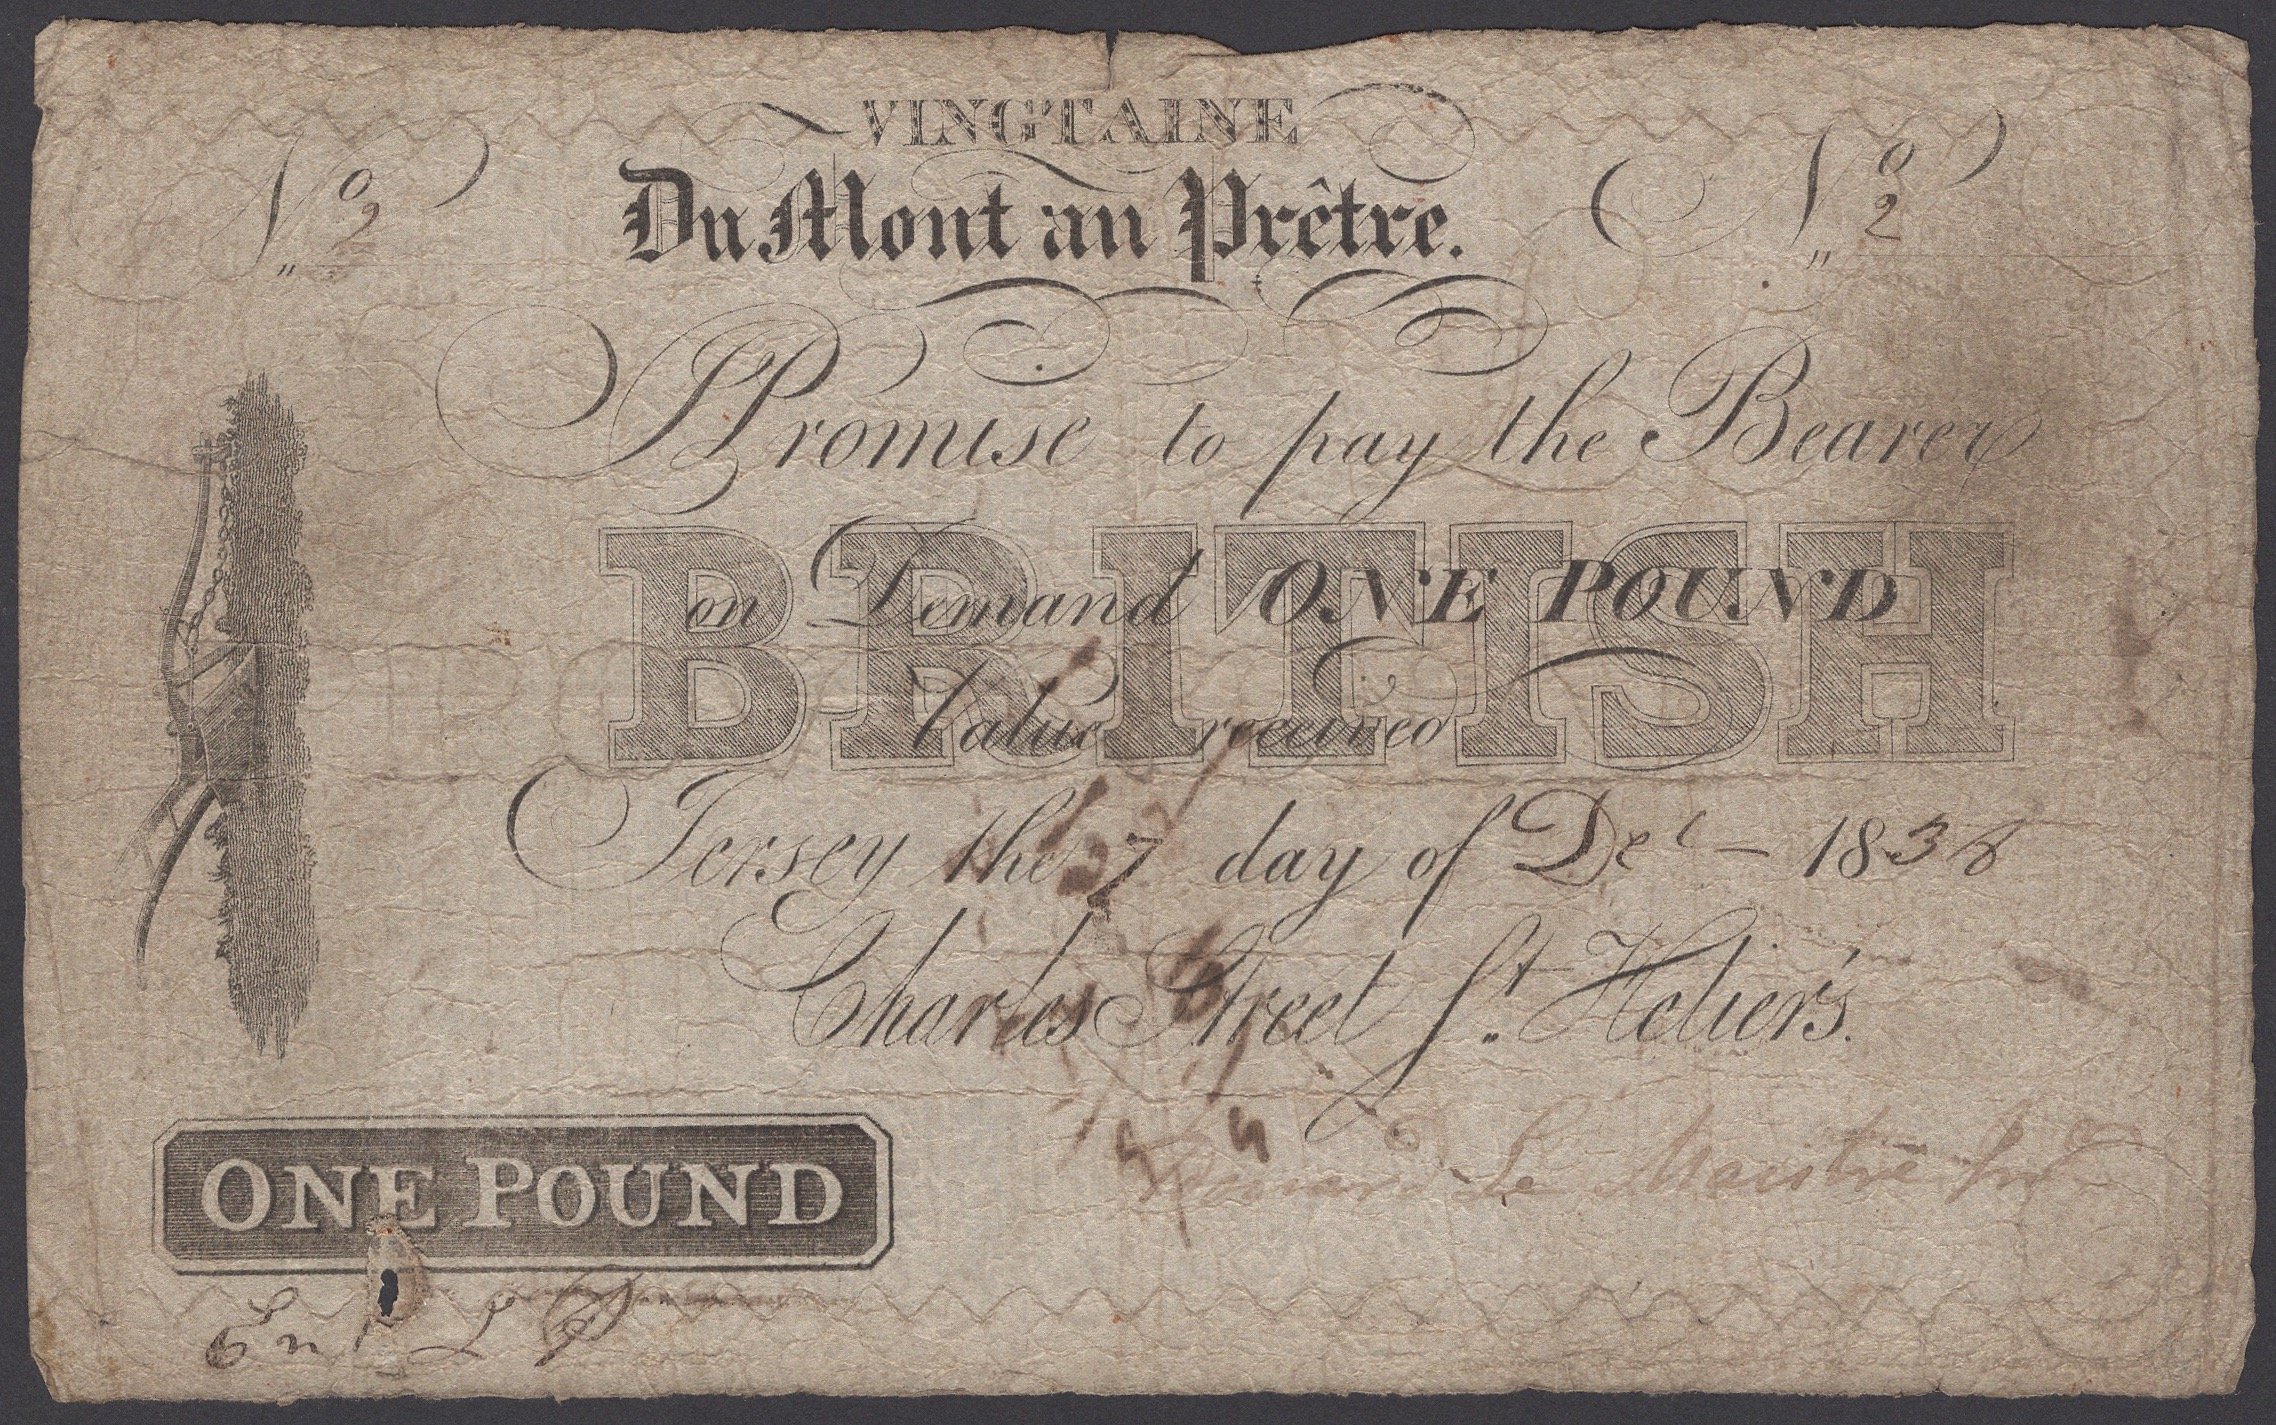 VINGTAINE
No 2 Du Mont au Prêtre. No 2
Promise to pay the Bearer
BRITISH
on Demand ONE POUND
Value received
Jersey the 7 day of Dec - 1838
Charles Street St. Helier's.
Le Maistre
ONE POUND